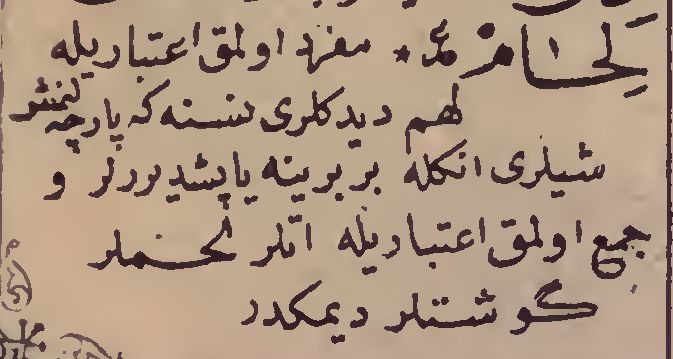 لِحَامْ ع * مفرد اولمق اعتباريله
لهم ديدكلرى نسنه كه پارچه لنمش
شيلرى انكله بربرينه ياپشديررلر و
جمع اولمق اعتباريله اتلر لحملر
گوشتلر ديمكدر